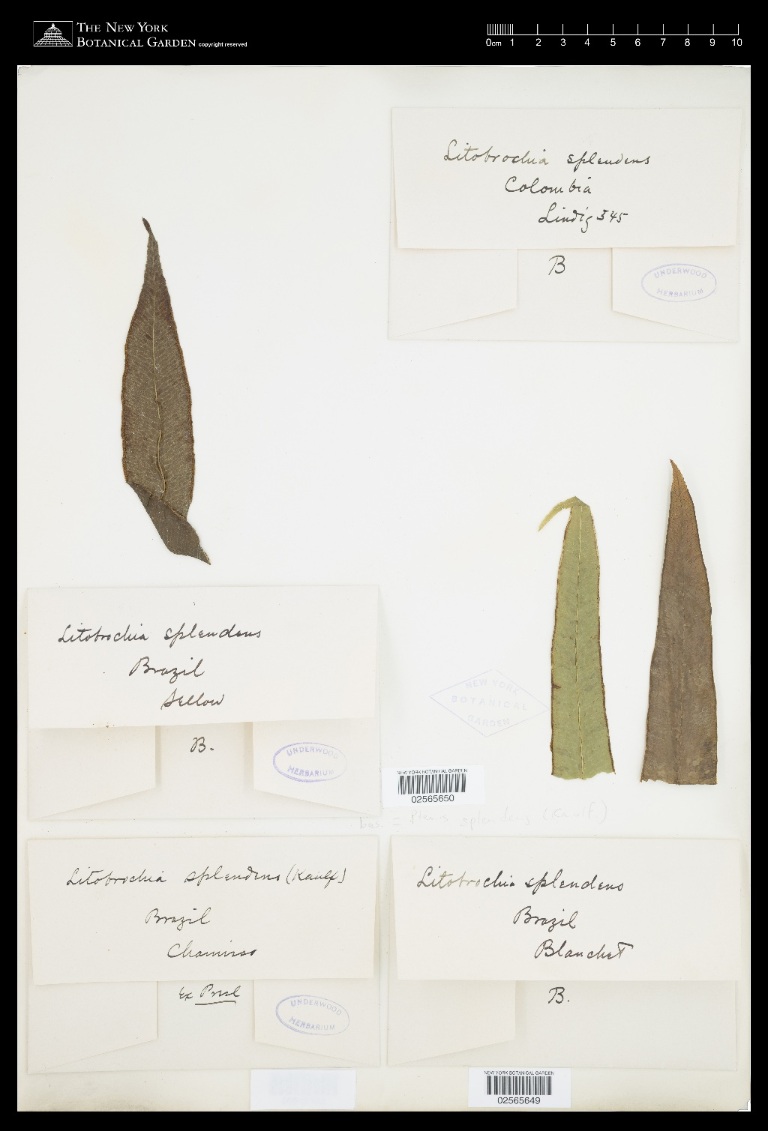 THE NEW YORK
BOTANICAL GARDEN copyright reserved
0cm 1 2 3 4 5 6 7 8 9 10
Litobrochia splendens
Colombia
Lindig 345
B
UNDERWOOD
HERBARIUM
Litobrochia splendens
Brazil
Sellow
B.
UNDERWOOD
HERBARIUM
NEW YORK
BOTANICAL
GARDEN
NEW YORK BOTANICAL GARDEN
02565650
= Pteris splendens (Kaulf.)
Litobrochia splendens (Kaulf)
Brazil
Chamisso
Ex Presl
UNDERWOOD
HERBARIUM
Litobrochia splendens
Brazil
Blanchet
B.
NEW YORK BOTANICAL GARDEN
02565649